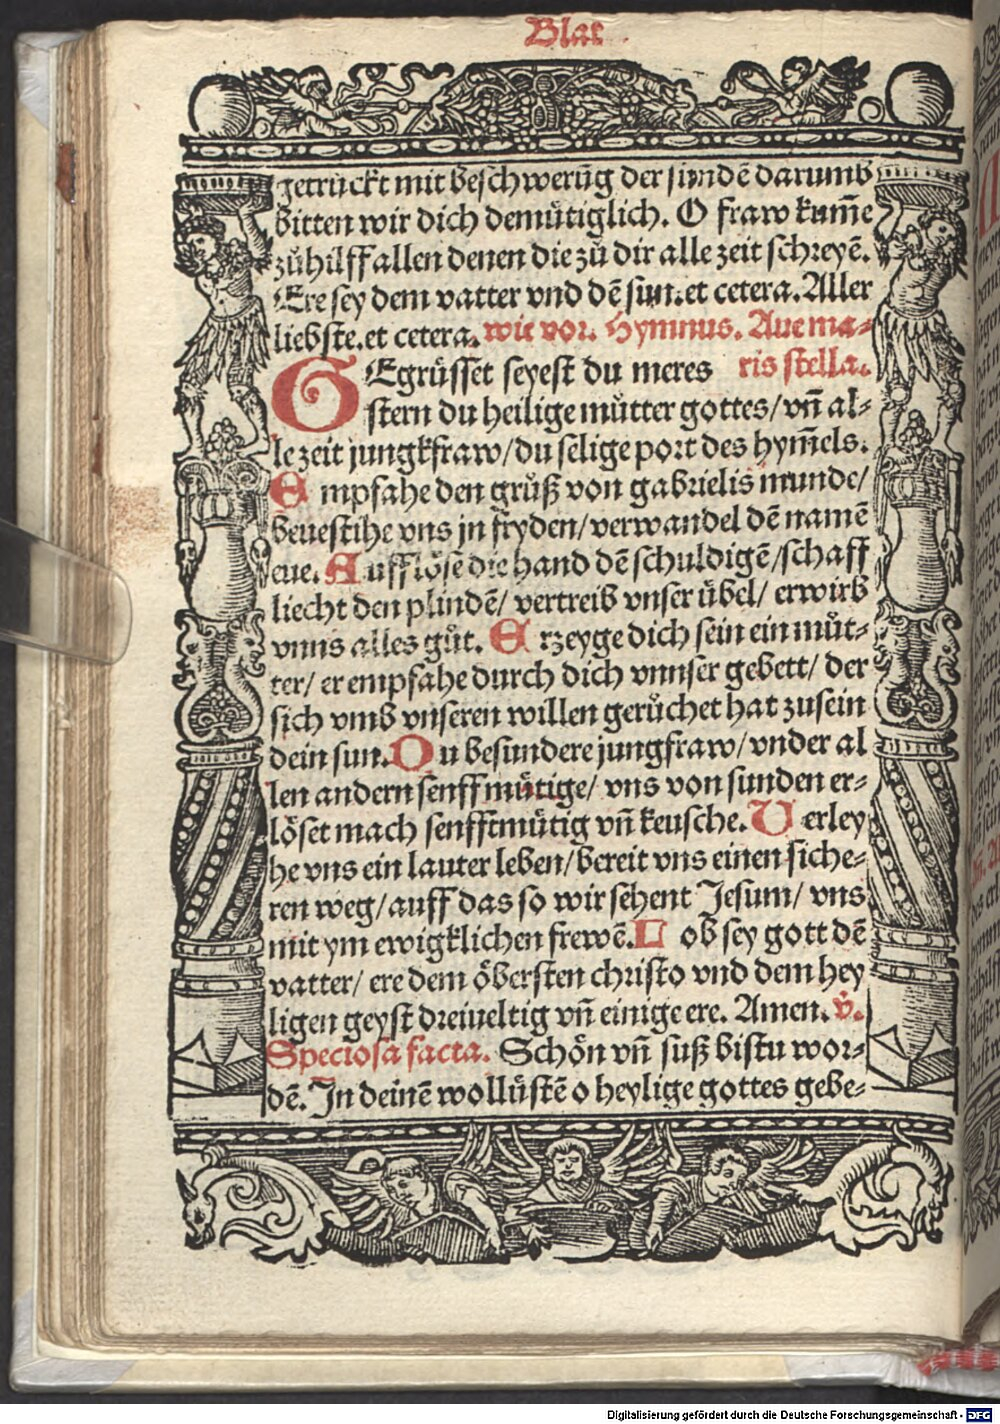 Blat
getruckt mit beschwerūg der sundē darumb
bitten wir dich demuͤtiglich. O fraw kum̄e
zuͦhilff allen denen die zuͦ dir alle zeit schreyē.
Ere sey dem vatter vnd dē sun.et cetera. Aller
liebste.et cetera. wie vor. Hymnus. Aue ma⸗
GEgruͤsset seyest du meres ris stella.
stern du heilige muͦtter gottes/ vn̄ al⸗
le zeit jungkfraw/ du selige port des hym̄els.
Empfahe den gruͦß von gabrielis munde/
beuestihe vns jn fryden/ verwandel dē namē
eue. Aufflöse die hand dē schuldigē/ schaff
liecht den plindē/ vertreib vnser uͤbel/ erwirb
vnns alles guͦt. Erzeyge dich sein ein muͦt⸗
ter/ er empfahe durch dich vnnser gebett/ der
sich vmb vnseren willen geruͦchet hat zusein
dein sun. Du besundere jungfraw/ vnder al
len andern senffmuͤtige/ vns von sunden er⸗
löset mach senfftmuͤtig vn̄ keusche. Verley
he vns ein lauter leben/ bereit vns einen siche⸗
ren weg/ auff das so wir sehent Jesum/ vns
mit ym ewigklichen frewē. Lob sey gott dē
vatter/ ere dem öbersten christo vnd dem hey
ligen geyst dreiueltig vn̄ einige ere. Amen. v̄.
Speciosa facta. Schön vn̄ suß bistu wor⸗
dē. Jn deinē wolluͤstē o heylige gottes gebe⸗
Digitalisierung gefördert durch die Deutsche Forschungsgemeinschaft - DFG